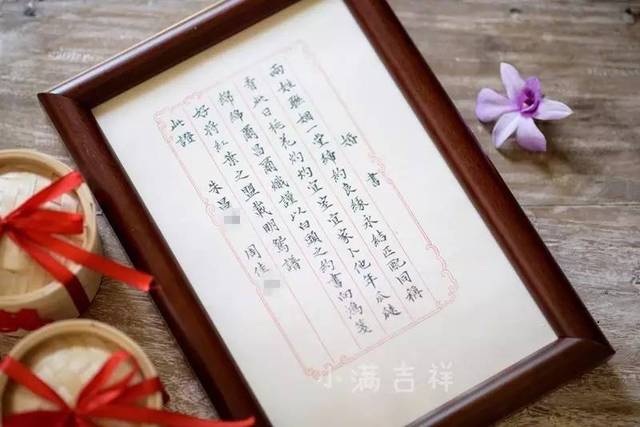 婚書
兩姓聯姻一堂締約良緣永結匹配同稱
看此日桃花灼灼宜室宜家卜他年瓜瓞
綿綿爾昌爾熾謹以白頭之約書向鴻箋
好將紅葉之盟載明鴛譜
此證 朱昌 周佳
小满吉祥